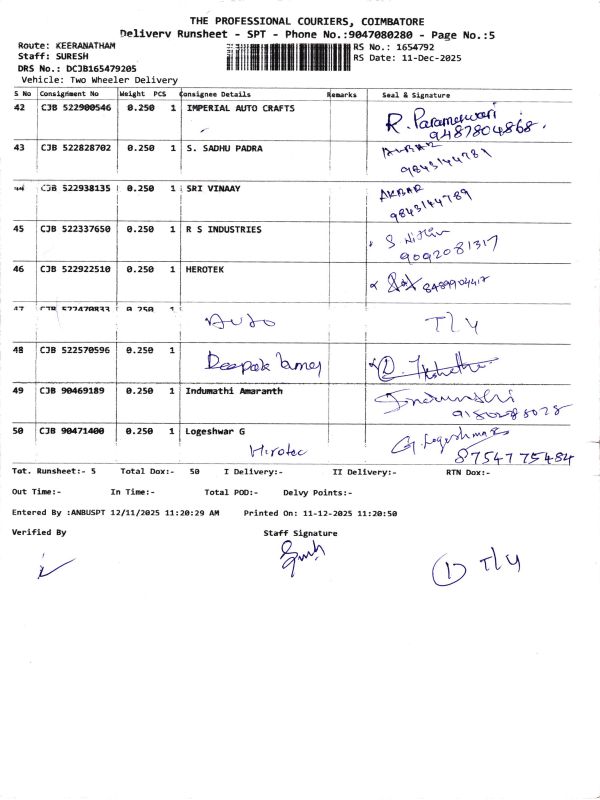 THE PROFESSIONAL COURIERS, COIMBATORE
Delivery Runsheet - SPT - Phone No.:9047080280 - Page No.:5
Route: KEERANATHAM
Staff: SURESH
DRS No.: DCJB165479205
Vehicle: Two Wheeler Delivery
RS No.: 1654792
RS Date: 11-Dec-2025
S No Consignment No Weight PCS Consignee Details Remarks Seal & Signature
42 CJB 522900546 0.250 1 IMPERIAL AUTO CRAFTS R. Parameswari
9487804868.
43 CJB 522828702 0.250 1 S. SADHU PADRA AKBAR
9843144781
44 CJB 522938135 0.250 1 SRI VINAAY AKBAR
9843144789
45 CJB 522337650 0.250 1 R S INDUSTRIES S
9092081317
46 CJB 522922510 0.250 1 HEROTEK 8489904417
47 CJB 522470833 0.250 1 Auto T/4
48 CJB 522570596 0.250 1
Deepak
49 CJB 90469189 0.250 1 Indumathi Amaranth
9180288028
50 CJB 90471400 0.250 1 Logeshwar G G. Logeshwar
Hirotec 8754775484
Tot. Runsheet:- 5 Total Dox:- 50 I Delivery:- II Delivery:- RTN Dox:-
Out Time:- In Time:- Total POD:- Delvy Points:-
Entered By :ANBUSPT 12/11/2025 11:20:29 AM Printed On: 11-12-2025 11:20:50
Verified By Staff Signature
1 T/4